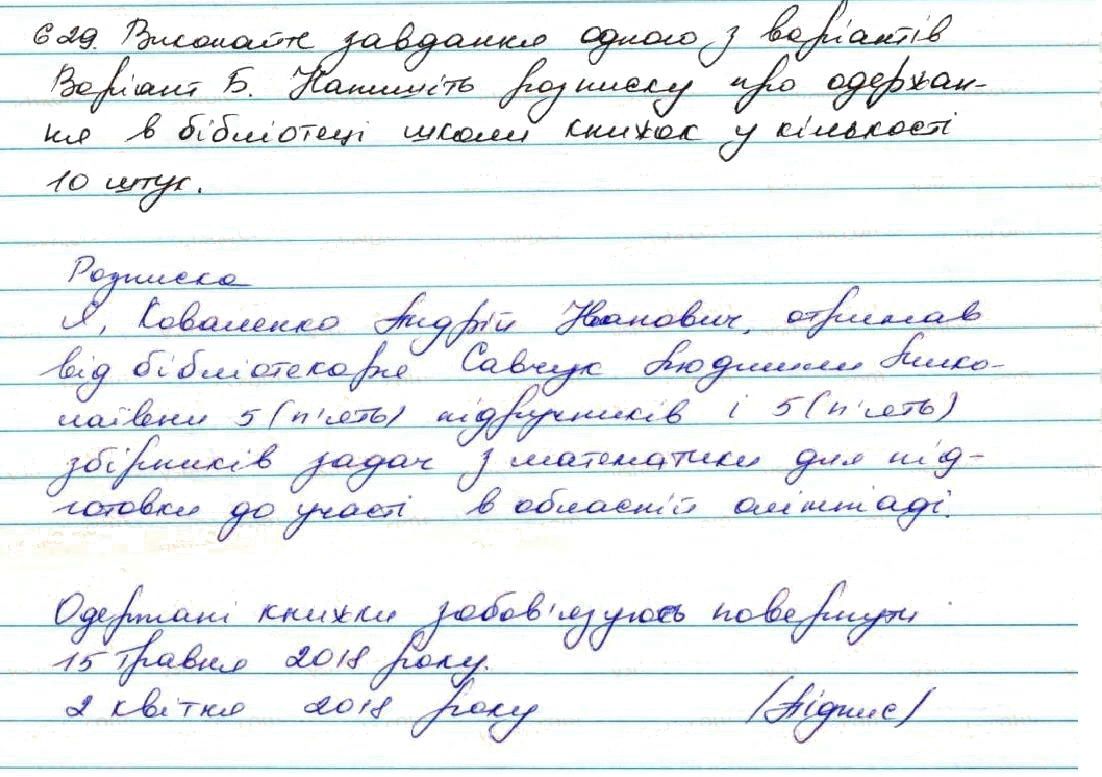 629. Виконайте завдання одного з варіантів
Варіант Б. Напишіть розписку про одержан-
ня в бібліотеці школи книжок у кількості
10 штук.
Розписка
Я, Коваленко Андрій Іванович, отримав
від бібліотекаря Савчук Людмили Мико-
лаївни 5 (п'ять) підручників і 5 (п'ять)
збірників задач з математики для під-
готовки до участі в обласній олімпіаді.
Одержані книжки зобов'язуюсь повернути
15 травня 2018 року.
2 квітня 2018 року (Підпис)